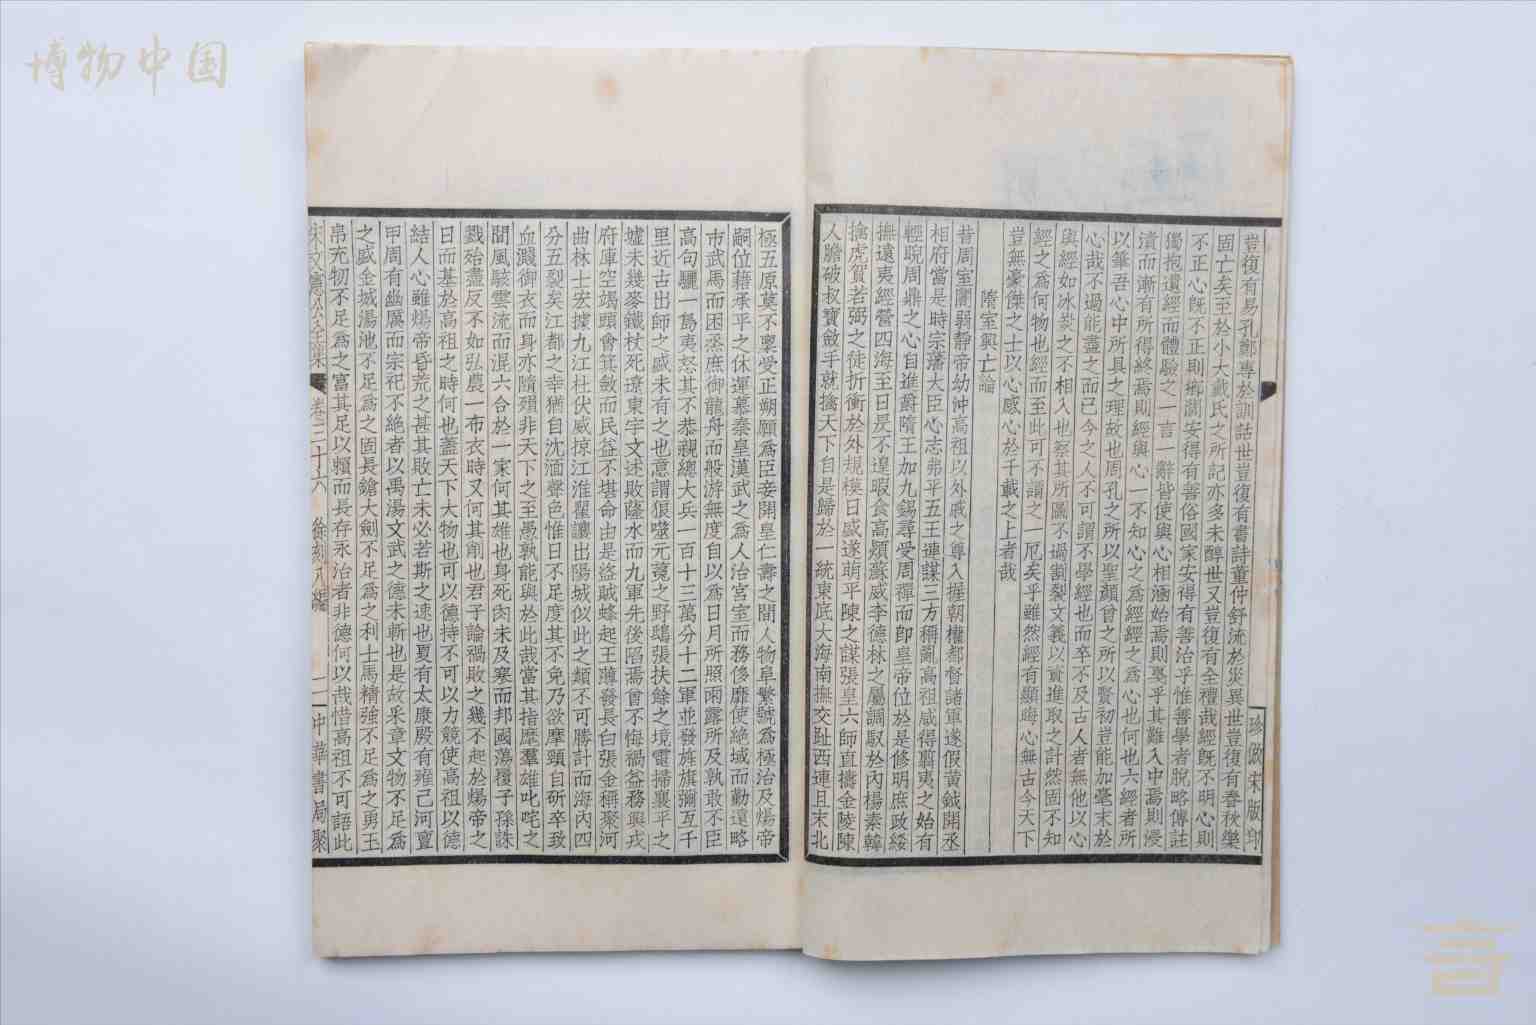 博物中国
豈復有易孔鄭專於訓詁世豈復有書詩董仲舒流於災異世豈復有春秋樂
固亡矣至於小大戴氏之所記亦多未醇世又豈復有全禮哉經既不明心則
不正心既不正則鄉閭安得有善俗國家安得有善治乎惟善學者脫略傳註
獨抱遺經而體驗之一言一辭皆使與心相涵始焉則戛乎其難入中焉則浸
漬而漸有所得終焉則經與心一不知心之為經經之為心也何也六經者所
以筆吾心中所具之理故也周孔之所以聖顏曾之所以賢初豈能加毫末於
心哉不過能盡之而已今之人不可謂不學經也而卒不及古人者無他以心
與經如冰炭之不相入也察其所圖不過割裂文義以資進取之計然固不知
經之為何物也經而至此可不謂之一厄矣乎雖然經有顯晦心無古今天下
豈無豪傑之士以心感心於千載之上者哉
隋室興亡論
昔周室闇弱靜帝幼沖高祖以外戚之尊入握朝權都督諸軍遂假黃鉞開丞
相府當是時宗藩大臣心志弗平五王連謀三方稱亂高祖咸得翦夷之始有
輕睨周鼎之心自進爵隋王加九錫尋受周禪而即皇帝位於是修明庶政綏
撫遠夷經營四海至日昃不遑暇食高熲蘇威李德林之屬調馭於內楊素韓
擒虎賀若弼之徒折衝於外規模日盛遂萌平陳之謀張皇六師直擣金陵陳
人膽破叔寶斂手就擒天下自是歸於一統東底大海南撫交趾西連且末北
珍倣宋版印
極五原莫不稟受正朔願為臣妾開皇仁壽之間人物阜繁號為極治及煬帝
嗣位藉承平之休運慕秦皇漢武之為人治宮室而務侈靡使絕域而勤遠略
市武馬而困烝庶御龍舟而般游無度自以為日月所照雨露所及孰敢不臣
高句驪一島夷怒其不恭親總大兵一百十三萬分十二軍並發旌旗彌亙千
里近古出師之盛未有之也意謂狠噬元菟之野鴟張扶餘之境電掃襄平之
墟未幾麥鐵杖死遼東宇文述敗薩水而九軍先後陷焉曾不悔禍益務興戎
府庫空竭頭會箕斂而民益不堪命由是盜賊蜂起王薄發長白張金稱聚河
曲林士宏據九江杜伏威掠江淮翟讓出陽城似此之類不可勝計而海內四
分五裂矣江都之幸猶自沈湎聲色惟日不足度其不免乃欲摩頸自斫卒致
血濺御衣而身亦隨殞非天下之至愚孰能與於此哉當其指麾羣雄叱咤之
間風駭雲流而混六合於一家何其雄也身死肉未及寒而邦國蕩覆子孫誅
戮始盡反不如弘農一布衣時又何其削也君子論禍敗之幾不起於煬帝之
日而基於高祖之時何也蓋天下大物也可以德持不可以力競使高祖以德
結人心雖煬帝昏荒之甚其敗亡未必若斯之速也夏有太康殷有雍己河亶
甲周有幽厲而宗祀不絕者以禹湯文武之德未斬也是故釆章文物不足為
之盛金城湯池不足為之固長鎗大劍不足為之利士馬精強不足為之勇玉
帛充牣不足為之富其足以賴而長存永治者非德何以哉惜高祖不可語此
宋文憲公全集 卷三十六 餘刻八編 一 中華書局聚
言